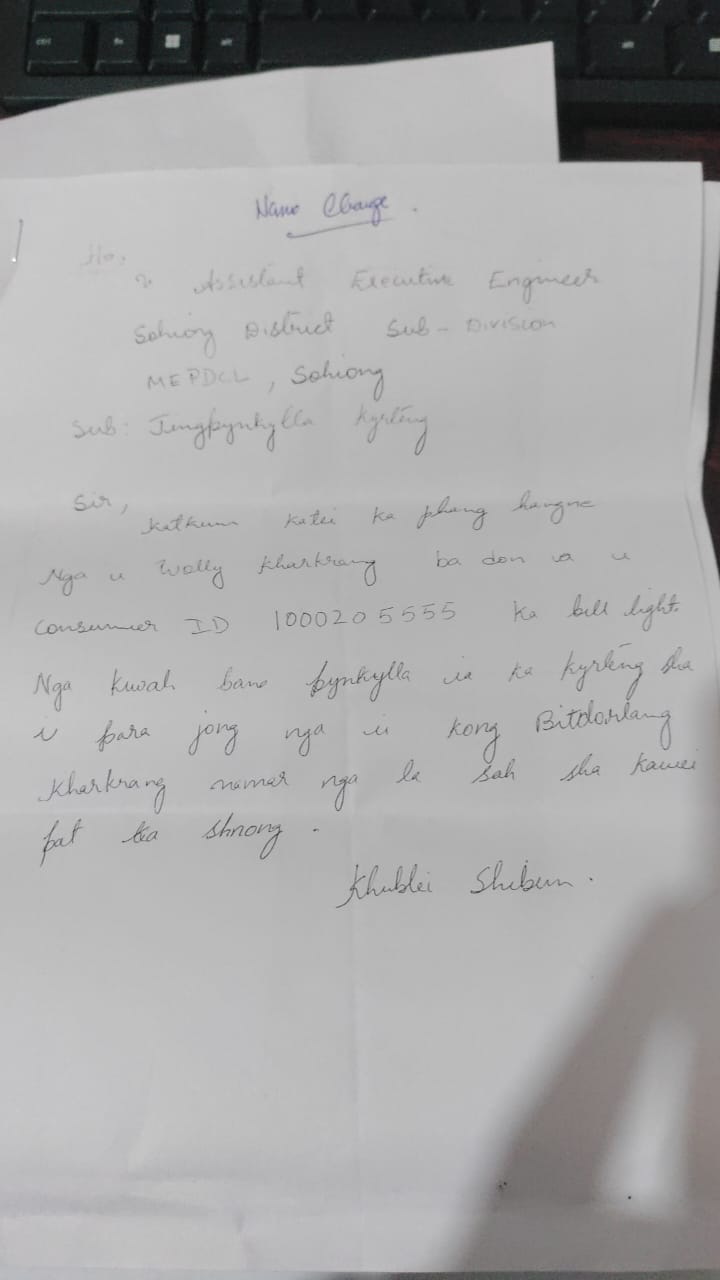 Name Change.
To,
Assistant Executive Engineer
Sohiong District Sub-Division
MEPDCL, Sohiong
Sub: Jingpynkylla Kyrtêng
Sir,
Katkum katei ka phang hangne
Nga u Wolly Kharkrang ba don ia u
Consumer ID 1000205555 ka bill light.
Nga kwah ban pynkylla ia ka kyrtêng sha
i para jong nga ii kong Bitdorlang
Kharkrang namar nga la sah sha kawei
pat ka shnong.
Khublei Shibun.